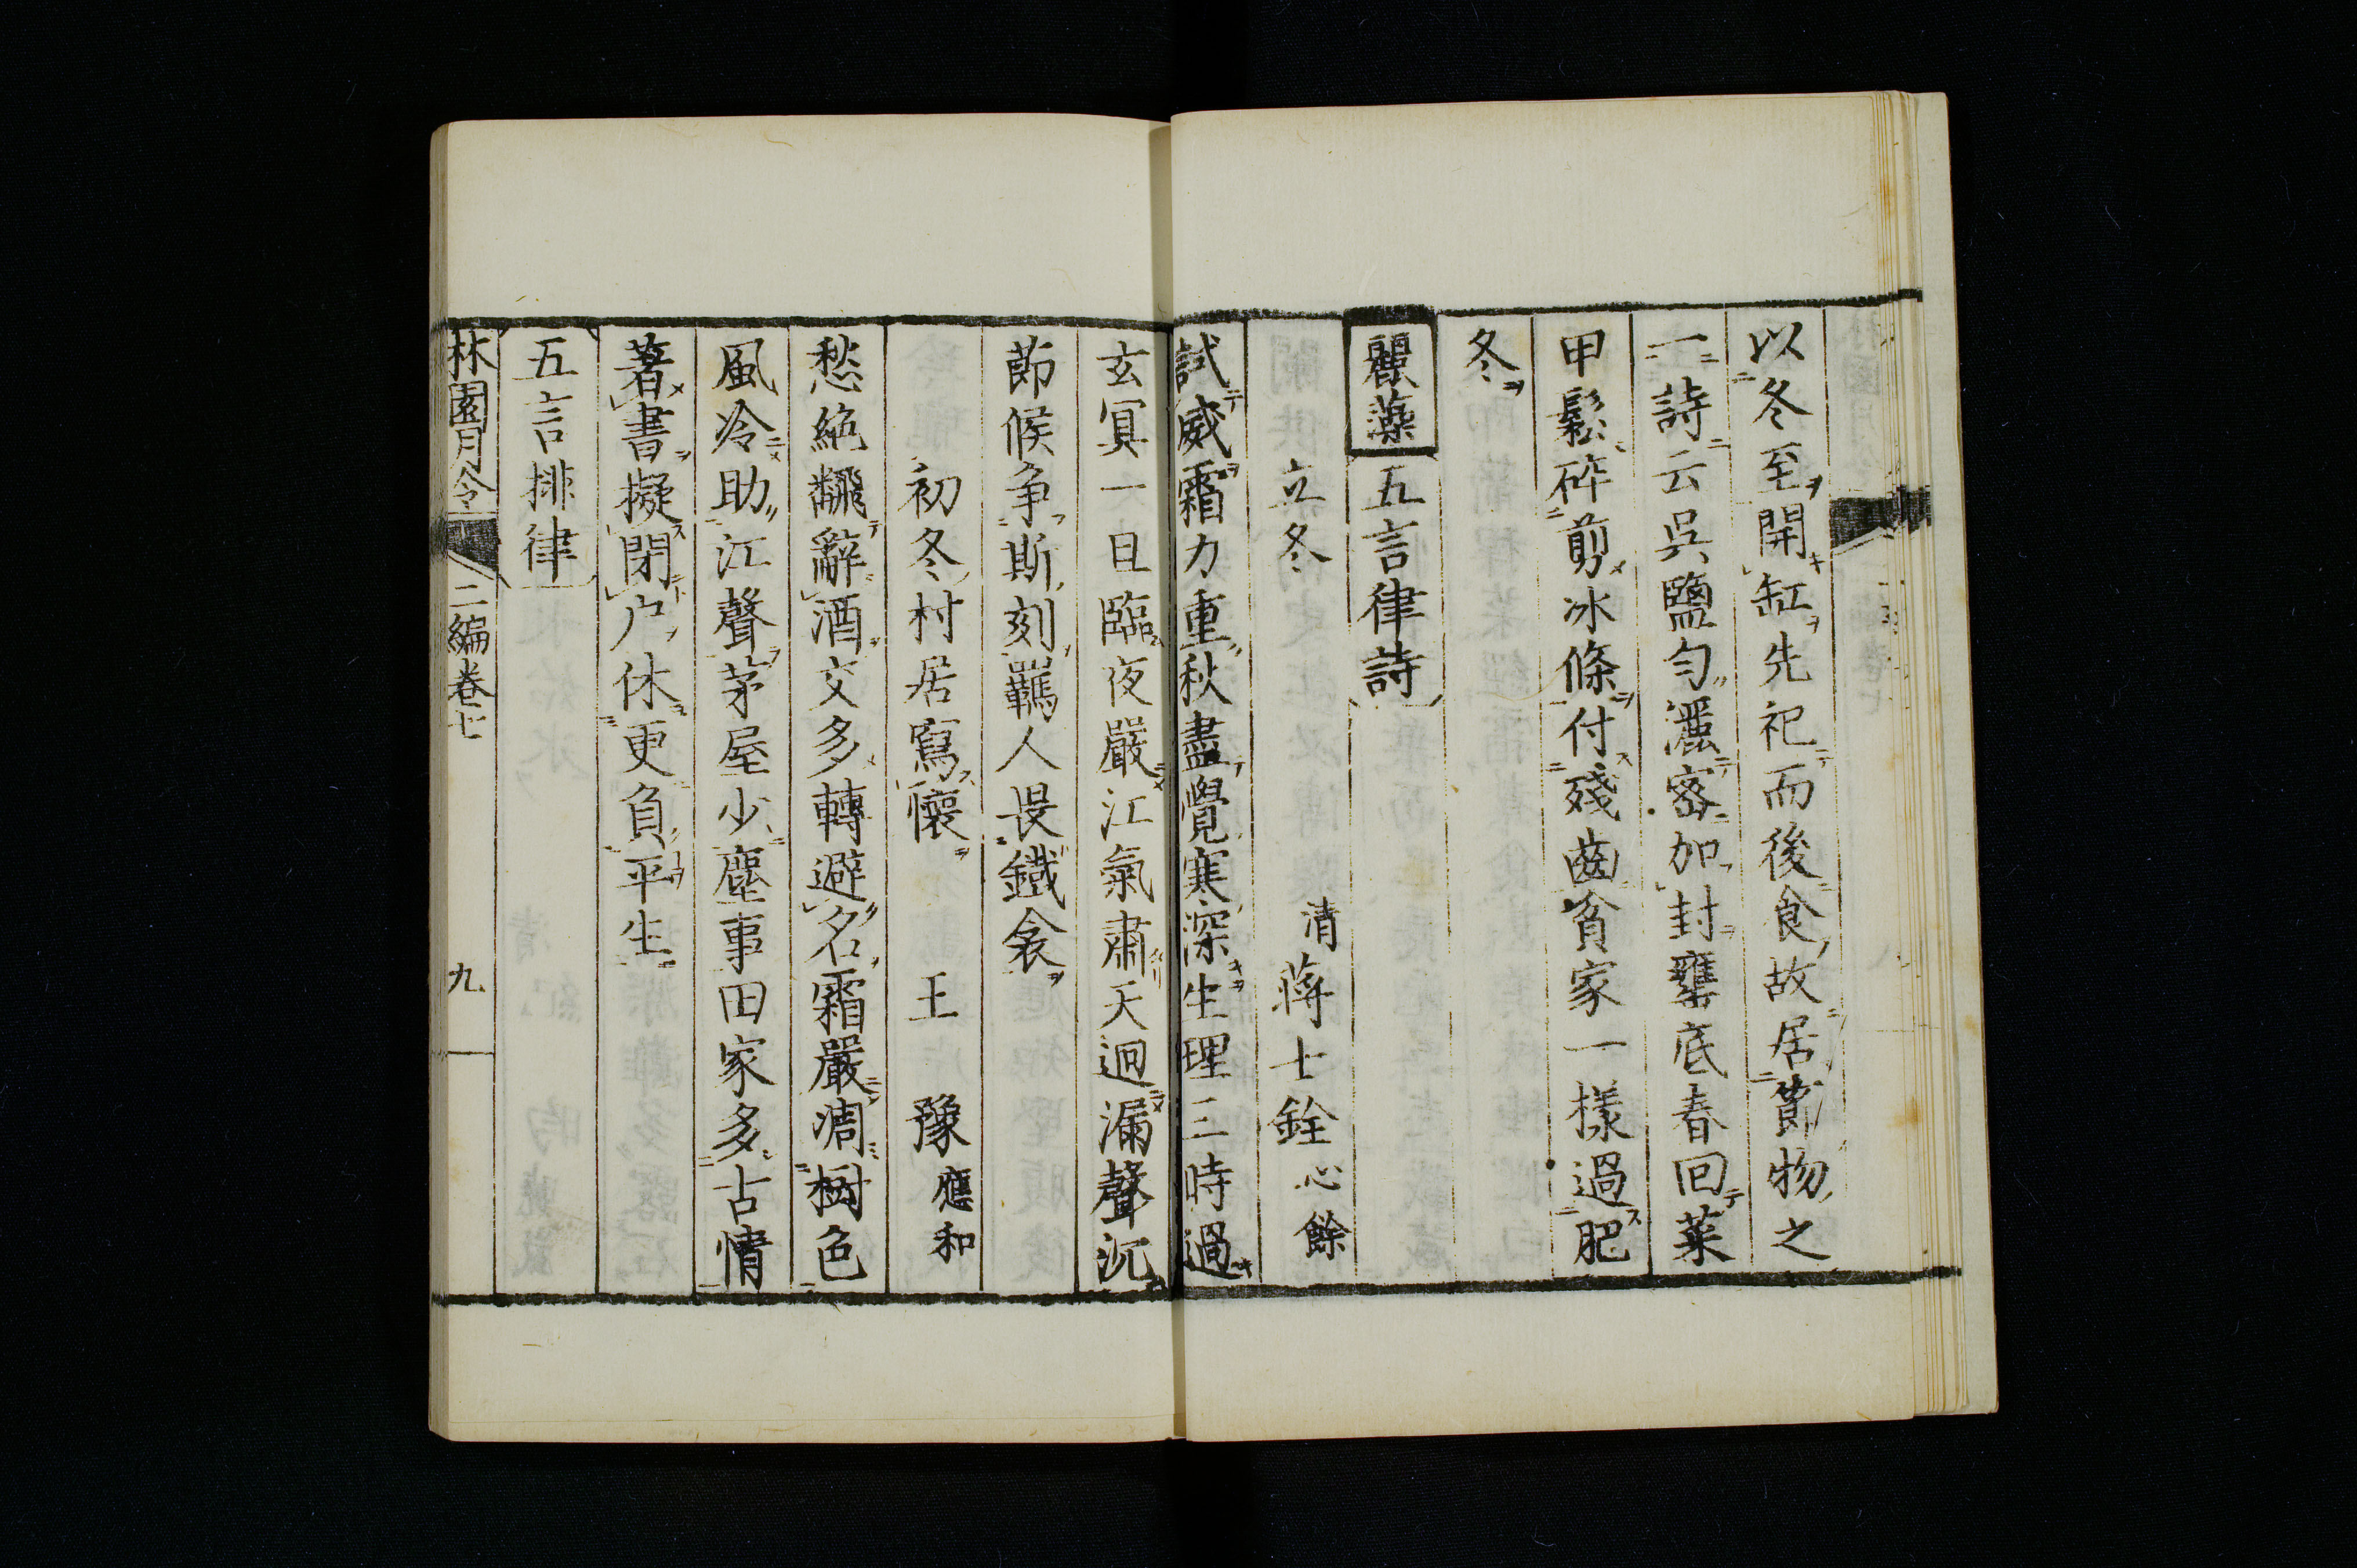 以冬至開缸先祀而後食故居賣物之
一詩云吳鹽勻灑密加封甕底春回菜
甲鬆碎剪冰條付殘齒貧家一樣過肥
冬
麗藻 五言律詩
立冬 清 蔣士銓 心餘
試威霜力重秋盡覺寒深生理三時過
玄冥一旦臨夜嚴江氣肅天迥漏聲沉
節候争斯刻羈人畏鐵衾
初冬村居寫懷 王豫 應和
愁絶翻辭酒交多轉避名霜嚴凋樹色
風冷助江聲茅屋少塵事田家多古情
著書擬閉户休更負平生
五言排律
林園月令 二編卷七 九